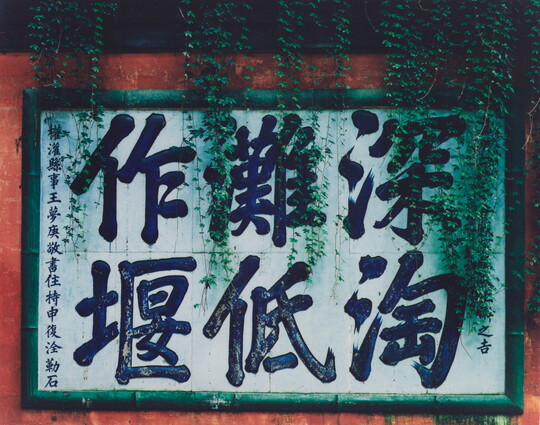 之吉
深淘
灘低
作堰
權灌縣事王夢庚敬書住持申復勒石